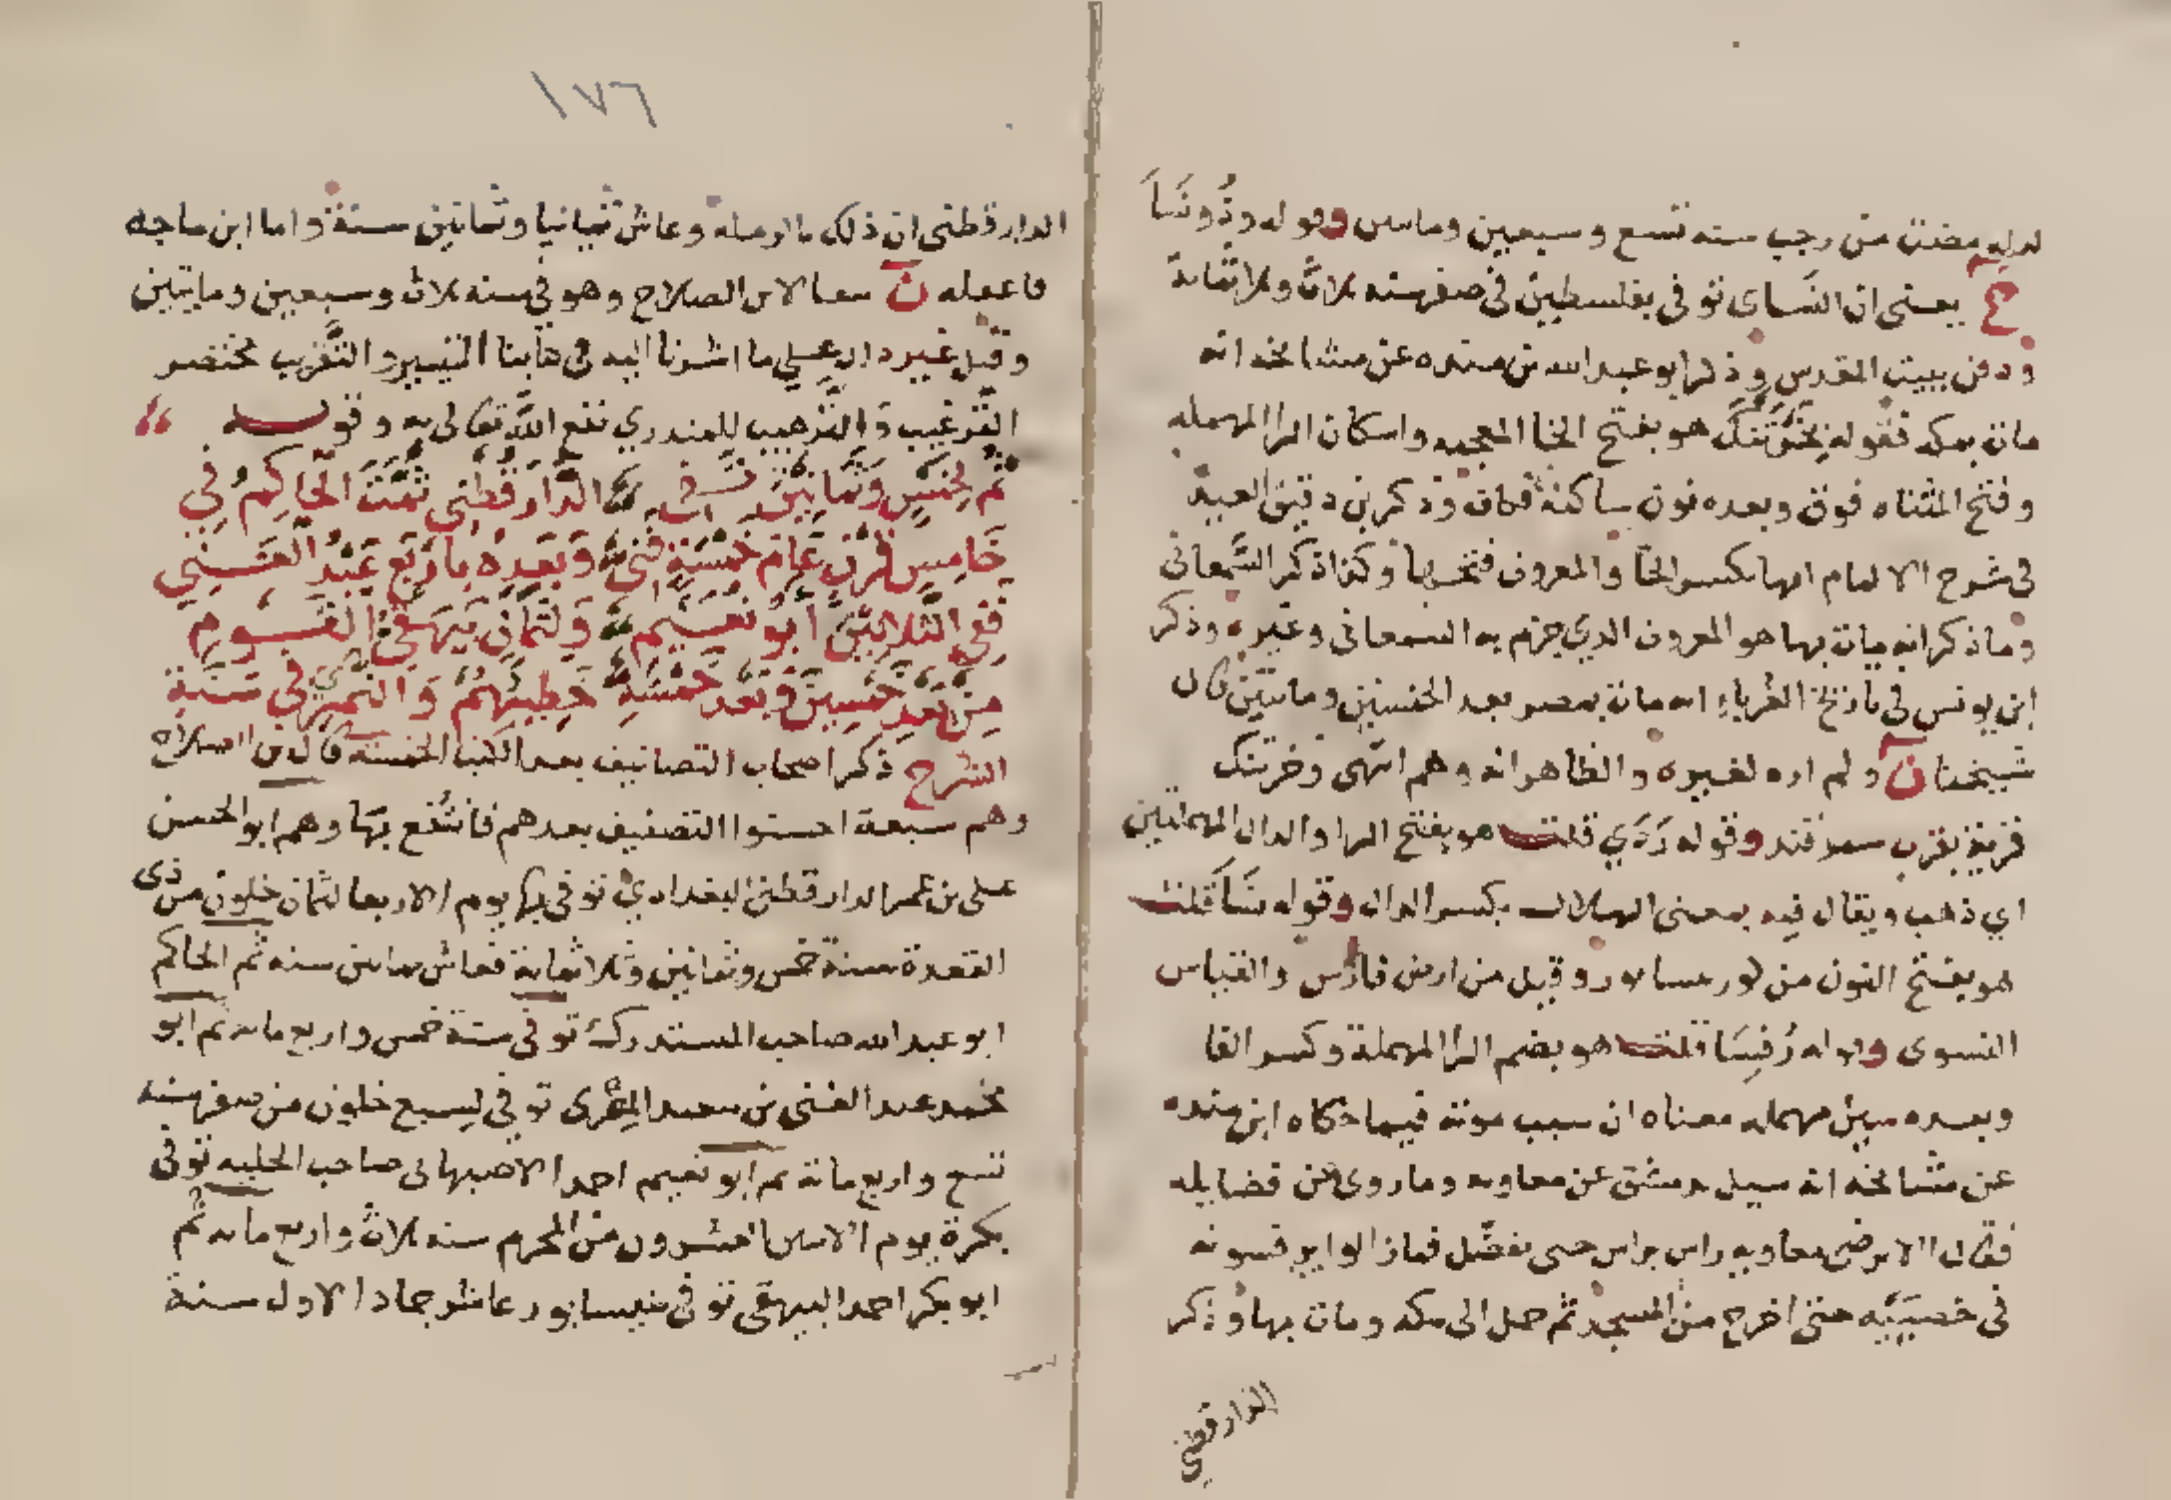 مضت من رجب سنه تسع وسبعين وماس وقوله وذو نَسَا
ع يعني ان النساى توفى بفلسطين فى صفر سنه ثلاث وثلاثمائة
ودفن ببيت المقدس وذكر ابو عبد الله بن منده عن مشايخه انه
مات بمكه فقوله بِخَرْتَنْكَ هو بفتح الخا المعجمه واسكان الرا المهمله
وفتح المثناه فوق وبعده نون ساكنة فكاف وذكر بن دقيق العيد
فى شرح الالمام انها بكسر الخا والمعروف فتحها وكذا ذكر السَّمعانى
وما ذكر انه مات بها هو المعروف الذي جزم به السمعانى وغيره وذكر
ابن يونس فى تاريخ الغرباء انه مات بمصر بعد الخمسين ومايتين قال
شيخنا ن ولم اره لغيره والظاهر انه وهم انتهى وخرتنك
قرية بقرب سمرقند وقوله رَدَي قلت هو بفتح الرا والدال المهملتين
اي ذهب ويقال فيه بمعنى الهلاك بكسر الدال وقوله نَسَا قلت
هو بفتح النون من كور نيسابور وقيل من ارض فارس والقياس
النسوى وقوله رُفِسَا قلت هو بضم الرا المهملة وكسر الفا
وبعده سين مهمله معناه ان سبب موته فيما حكاه ابن منده
عن مشايخه انه سيل بدمشق عن معاويه وما روى من فضايله
فقال الا يرضى معاويه راس براس حتى يفضّل فما زالوا يرفسونه
فى خصيَيَيْه حتى اخرج من المسجد ثم حمل الى مكه ومات بها وذكر
الدارقطني
١٧٦
الدارقطنى ان ذلك بالرمله وعاش ثمانيا وثمانين سنة واما ابن ماجه
فاغفله ن تبعا لابن الصلاح وهو فى سنه ثلاث وسبعين ومايتين
وقيل غير ذلك على ما اشرنا اليه فى كتابنا التيسير والتقريب مختصر
التَّرغيب وَالتَّرهيب للمنذري نفع اللَّه تعالى به وقوله
ثُمَ لِخَمْسٍ وَثَمَانِيْنَ الدَّارَقُطْنِي ثُمَّتَ الْحَاكِمُ فِي
خَامِسِ قَرْنٍ عَامَ خَمْسَةٍ فَنِي وَبَعْدَهُ بِأَرْبَعٍ عَبْدُ الْغَنِي
فَفِي الثَّلاثِيْنَ أَبُو نُعَيْمِ وَلِثَمَانٍ بَيْهَقِيُّ الْقَوْمِ
مِنْ بَعْدِ خَمْسِينَ وَبَعْدَ خَمْسَةِ خَطِيْبُهُمْ وَالنَّمَرِيْ فِي سَنَةِ
الشرح ذكر اصحاب التصانيف بعد الكتب الخمسة قال بن الصلاح
وهم سبعة احسنوا التصنيف بعدهم فانتُفع بها وهم ابو الحسن
على بن عمر الدارقطنى البغدادي توفى بها يوم الاربعا لثمان خلون من ذى
القعدة سنة خمس وثمانين وثلاثماية فعاش ثمانين سنه ثم الحاكم
ابو عبد الله صاحب المستدرك توفى سنة خمس واربع مايه ثم ابو
محمد عبد الغنى بن سعيد المصرى توفى لسبع خلون من صفر سنه
تسع واربع ماية ثم ابو نعيم احمد الاصبهانى صاحب الحليه توفى
بكرة يوم الاثنين العشرون من المحرم سنه ثلاث واربع مايه ثم
ابو بكر احمد البيهقى توفى بنيسابور عاشر جمادا الاول سنة